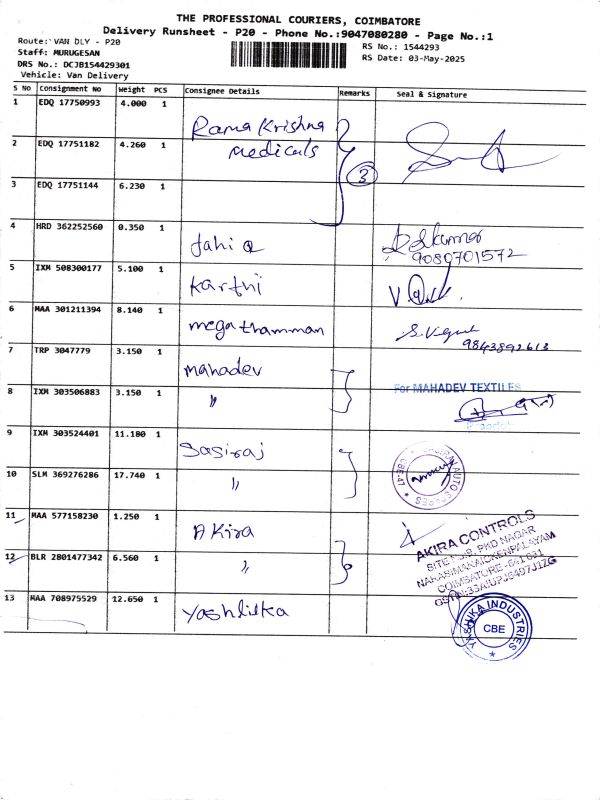 THE PROFESSIONAL COURIERS, COIMBATORE
Delivery Runsheet - P20 - Phone No.:9047080280 - Page No.:1
Route: VAN DLY - P20
RS No.: 1544293
Staff: MURUGESAN
RS Date: 03-May-2025
DRS No.: DCJB154429301
Vehicle: Van Delivery
S No Consignment No Weight PCS Consignee Details Remarks Seal & Signature
1 EDQ 17750993 4.000 1 Rama Krishna
2 EDQ 17751182 4.260 1 medicals
3 EDQ 17751144 6.230 1 3
4 HRD 362252560 0.350 1
9080701572
5 IXM 508300177 5.100 1 Karthi
6 MAA 301211394 8.140 1 megathamman
9843892613
7 TRP 3047779 3.150 1 mahadev
8 IXM 303506883 3.150 1 " For MAHADEV TEXTILES
9 IXM 303524401 11.180 1 Sasiraj
10 SLM 369276286 17.740 1 "
11 MAA 577158230 1.250 1 Akira
AKIRA CONTROLS
PKD NAGAR
COIMBATORE
12 BLR 2801477342 6.560 1 "
13 MAA 708975529 12.650 1
INDUSTRIES
CBE